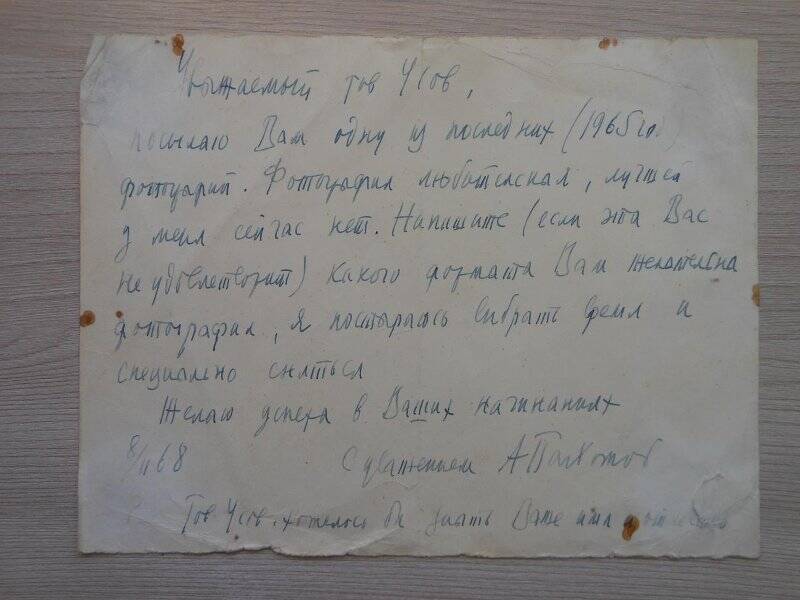 Уважаемый тов Усов,
посылаю Вам одну из последних (1965год)
фотографий. Фотография любительская, лучшей
у меня сейчас нет. Напишите (если эта Вас
не удовлетворит) какого формата Вам желательна
фотография, я постараюсь выбрать время и
специально сняться
Желаю успеха в Ваших начинаниях
8/II 68 С уважением А Пахомов
Тов Усов. хотелось бы знать Ваше имя и отчество